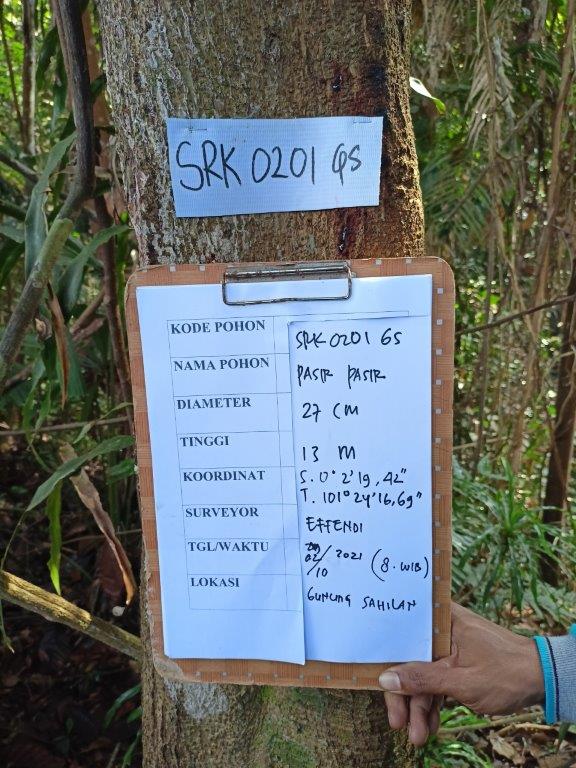 SRK 0201 GS
KODE POHON SRK 0201 GS
NAMA POHON PASIR PASIR
DIAMETER 27 CM
TINGGI 13 M
KOORDINAT S. 0° 2' 19, 42"
T. 101° 24' 16, 69"
SURVEYOR EFFENDI
TGL/WAKTU 02/10 2021 (8. WIB)
LOKASI GUNUNG SAHILAN